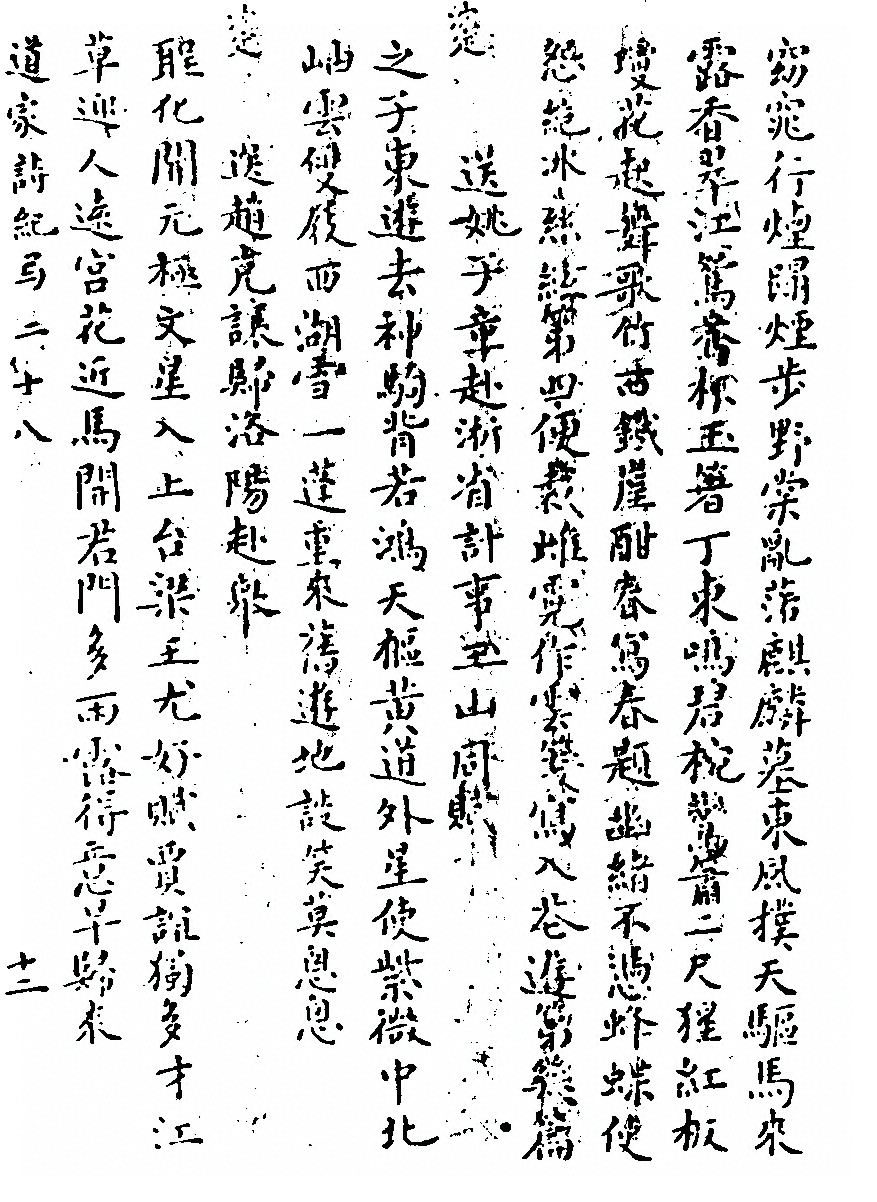 窈窕行煙踏煙步野棠亂落麒麟墓東風撲天驅馬來
露香翠江鴛鴦杯玉箸丁東鳴碧椀鸞簫二尺猩紅板
雙花起舞歌竹古鐵崖酣春寫春題幽緒不憑蜂蝶使
愁絕冰絲絃第四便裁雌霓作雲箋寫入花遊第幾篇
送姚子章赴浙省計事玉山同賦
之子東遊去神駒背若鴻天樞黃道外星使紫微中北
岫雲雙嶺西湖雪一蓬重來舊遊地談笑莫悤悤
送趙克讓歸洛陽赴舉
聖化開元極文星入上台梁王尤好賦賈誼獨多才江
草迎人遠宮花近馬開君門多雨露得意早歸來
道家詩紀弓二十八
十二